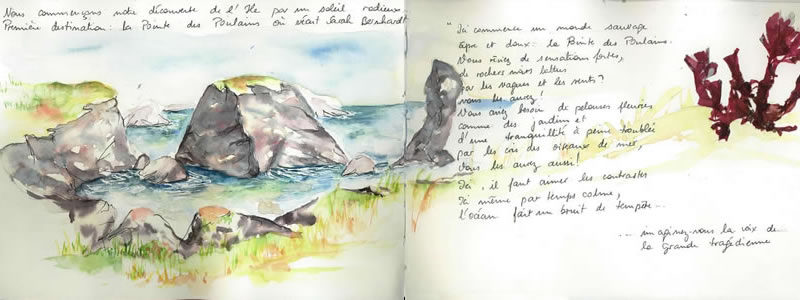 Nous commençons notre découverte de l'Ile par un soleil radieux.
Première destination : la Pointe des Poulains où vécut Sarah Bernhardt
"Ici commence un monde sauvage
âpre et doux : la Pointe des Poulains.
Vous rêvez de sensations fortes,
de rochers noirs battus
par les vagues et les vents ?
vous les aurez !
Vous avez besoin de pelouses fleuries,
comme des jardins et
d'une tranquillité à peine troublée
par les cris des oiseaux de mer,
Vous les aurez aussi !
Ici, il faut aimer les contrastes
Ici même par temps calme,
l'océan fait un bruit de tempête...
... imaginez-vous la voix de
la Grande tragédienne